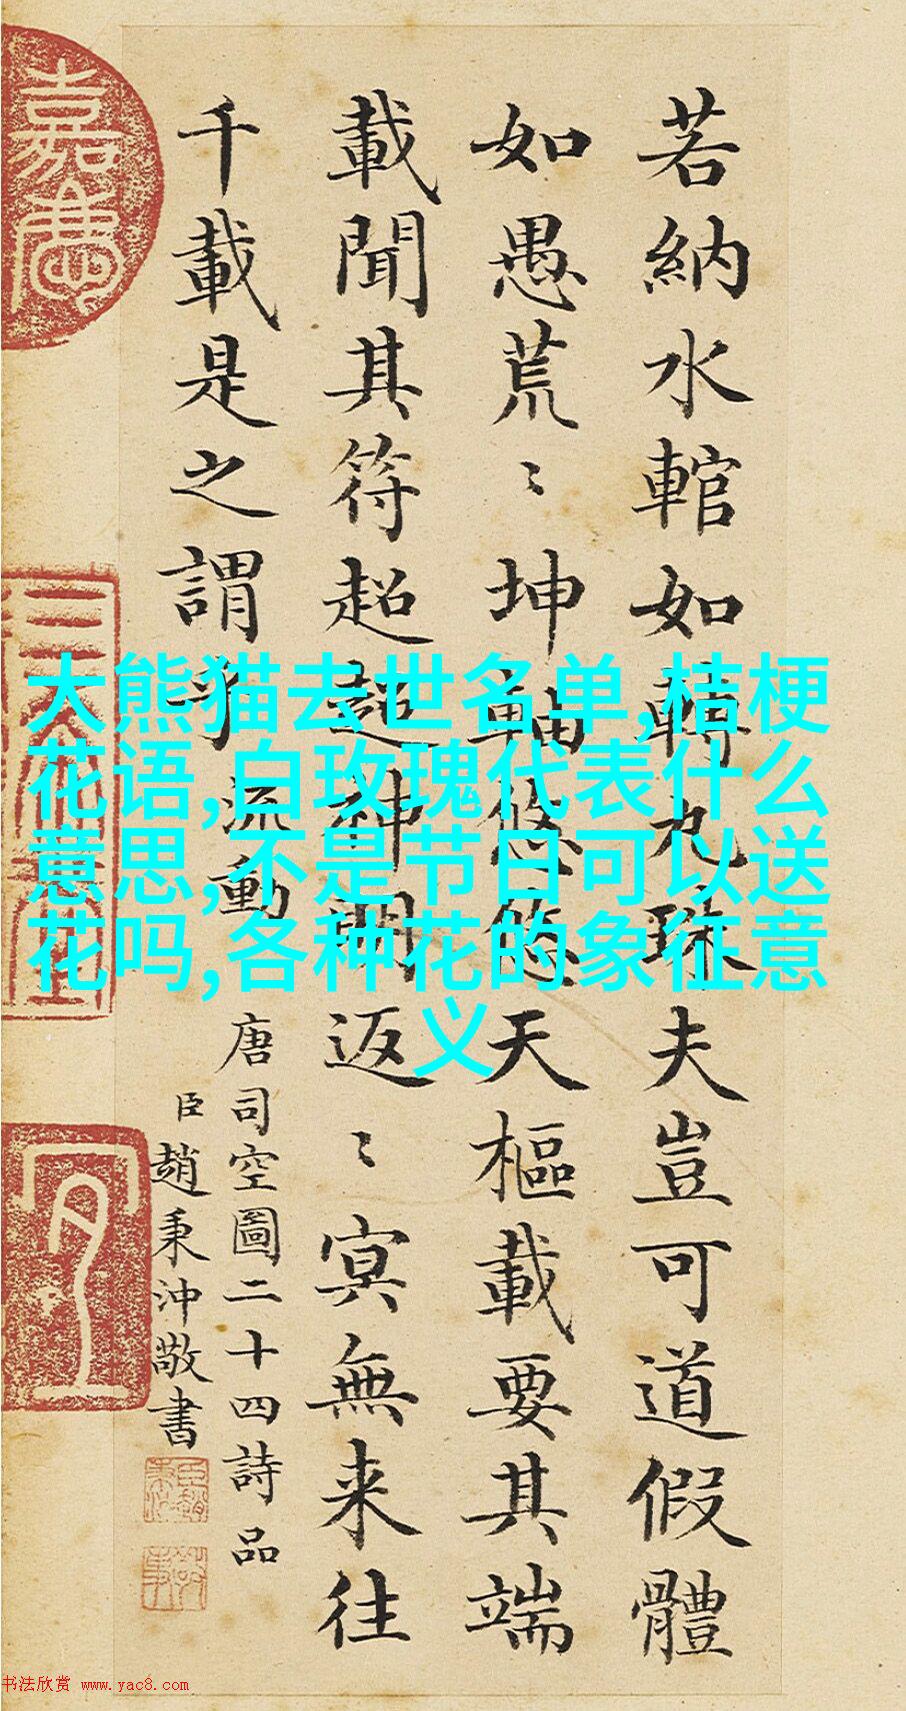 若納水輨如轉丸珠夫豈可道假體
如愚荒〻坤軸悠悠天樞載要其端
載聞其符超超神明返〻冥無来往
千載是之謂乎 流動
唐司空圖二十四詩品
臣趙秉沖敬書
嘉慶
大熊猫去世名单,桔梗
花语,白玫瑰代表什么
意思,不是节日可以送
花吗,各种花的象征意
义
书法欣赏 www.yac8.com